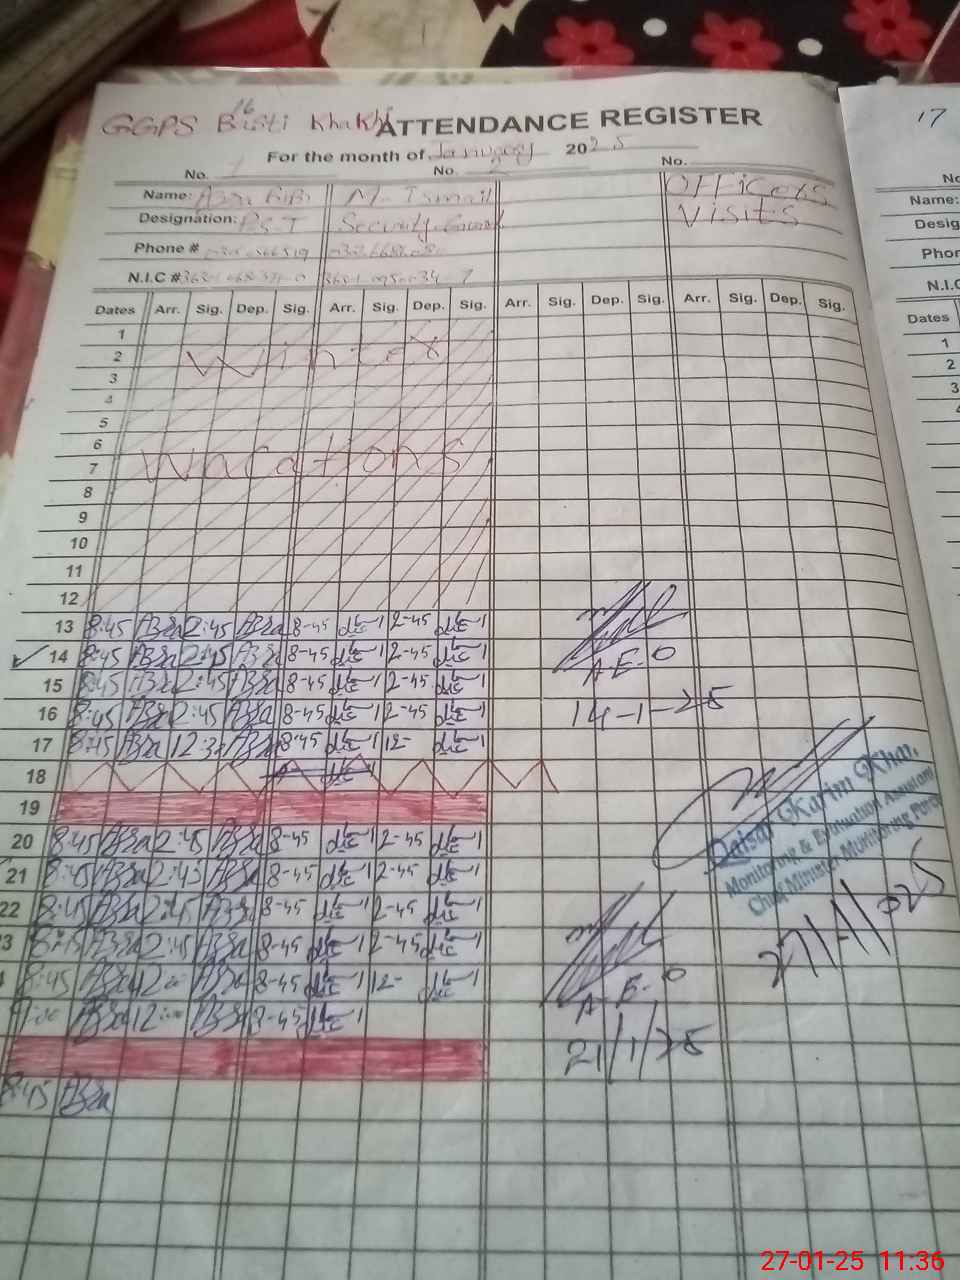 16
GGPS Basti Khakhi ATTENDANCE REGISTER
For the month of January 2025
No. 1 No. 2 No.
Name: Azra BiBi M. Ismail OFFicers
Designation: P.S.T Security Guard Visits
Phone #
N.I.C #
Dates Arr. Sig. Dep. Sig. Arr. Sig. Dep. Sig. Arr. Sig. Dep. Sig. Arr. Sig. Dep. Sig.
1
2 Winter
3
4
5
6
7 Wacations
8
9
10
11
12
13 8:45 Azra 2:45 Azra 8-45 2-45
14 8:45 Azra 2:45 Azra 8-45 2-45
A.E.O
15 8:45 Azra 2:45 Azra 8-45 2-45
16 8:45 Azra 2:45 Azra 8-45 2-45
14-1-25
17 8:45 Azra 12:30 Azra 8-45 12-
18
19
20 8:45 Azra 2:45 Azra 8-45 2-45
21 8:45 Azra 2:45 Azra 8-45 2-45
22 8:45 Azra 2:45 Azra 8-45 2-45
3 8:45 Azra 2:45 Azra 8-45 2-45
8:45 Azra 12:00 Azra 8-45 12-
Azra 12:00 Azra 8-45
8:45 Azra
Karim Khan
Monitoring & Evaluation Assistant
Chief Minister Monitoring Force
A.E.O
21/1/25
17
No
Name:
Desig
Phor
N.I.C
Dates
1
2
3
27-01-25 11:36